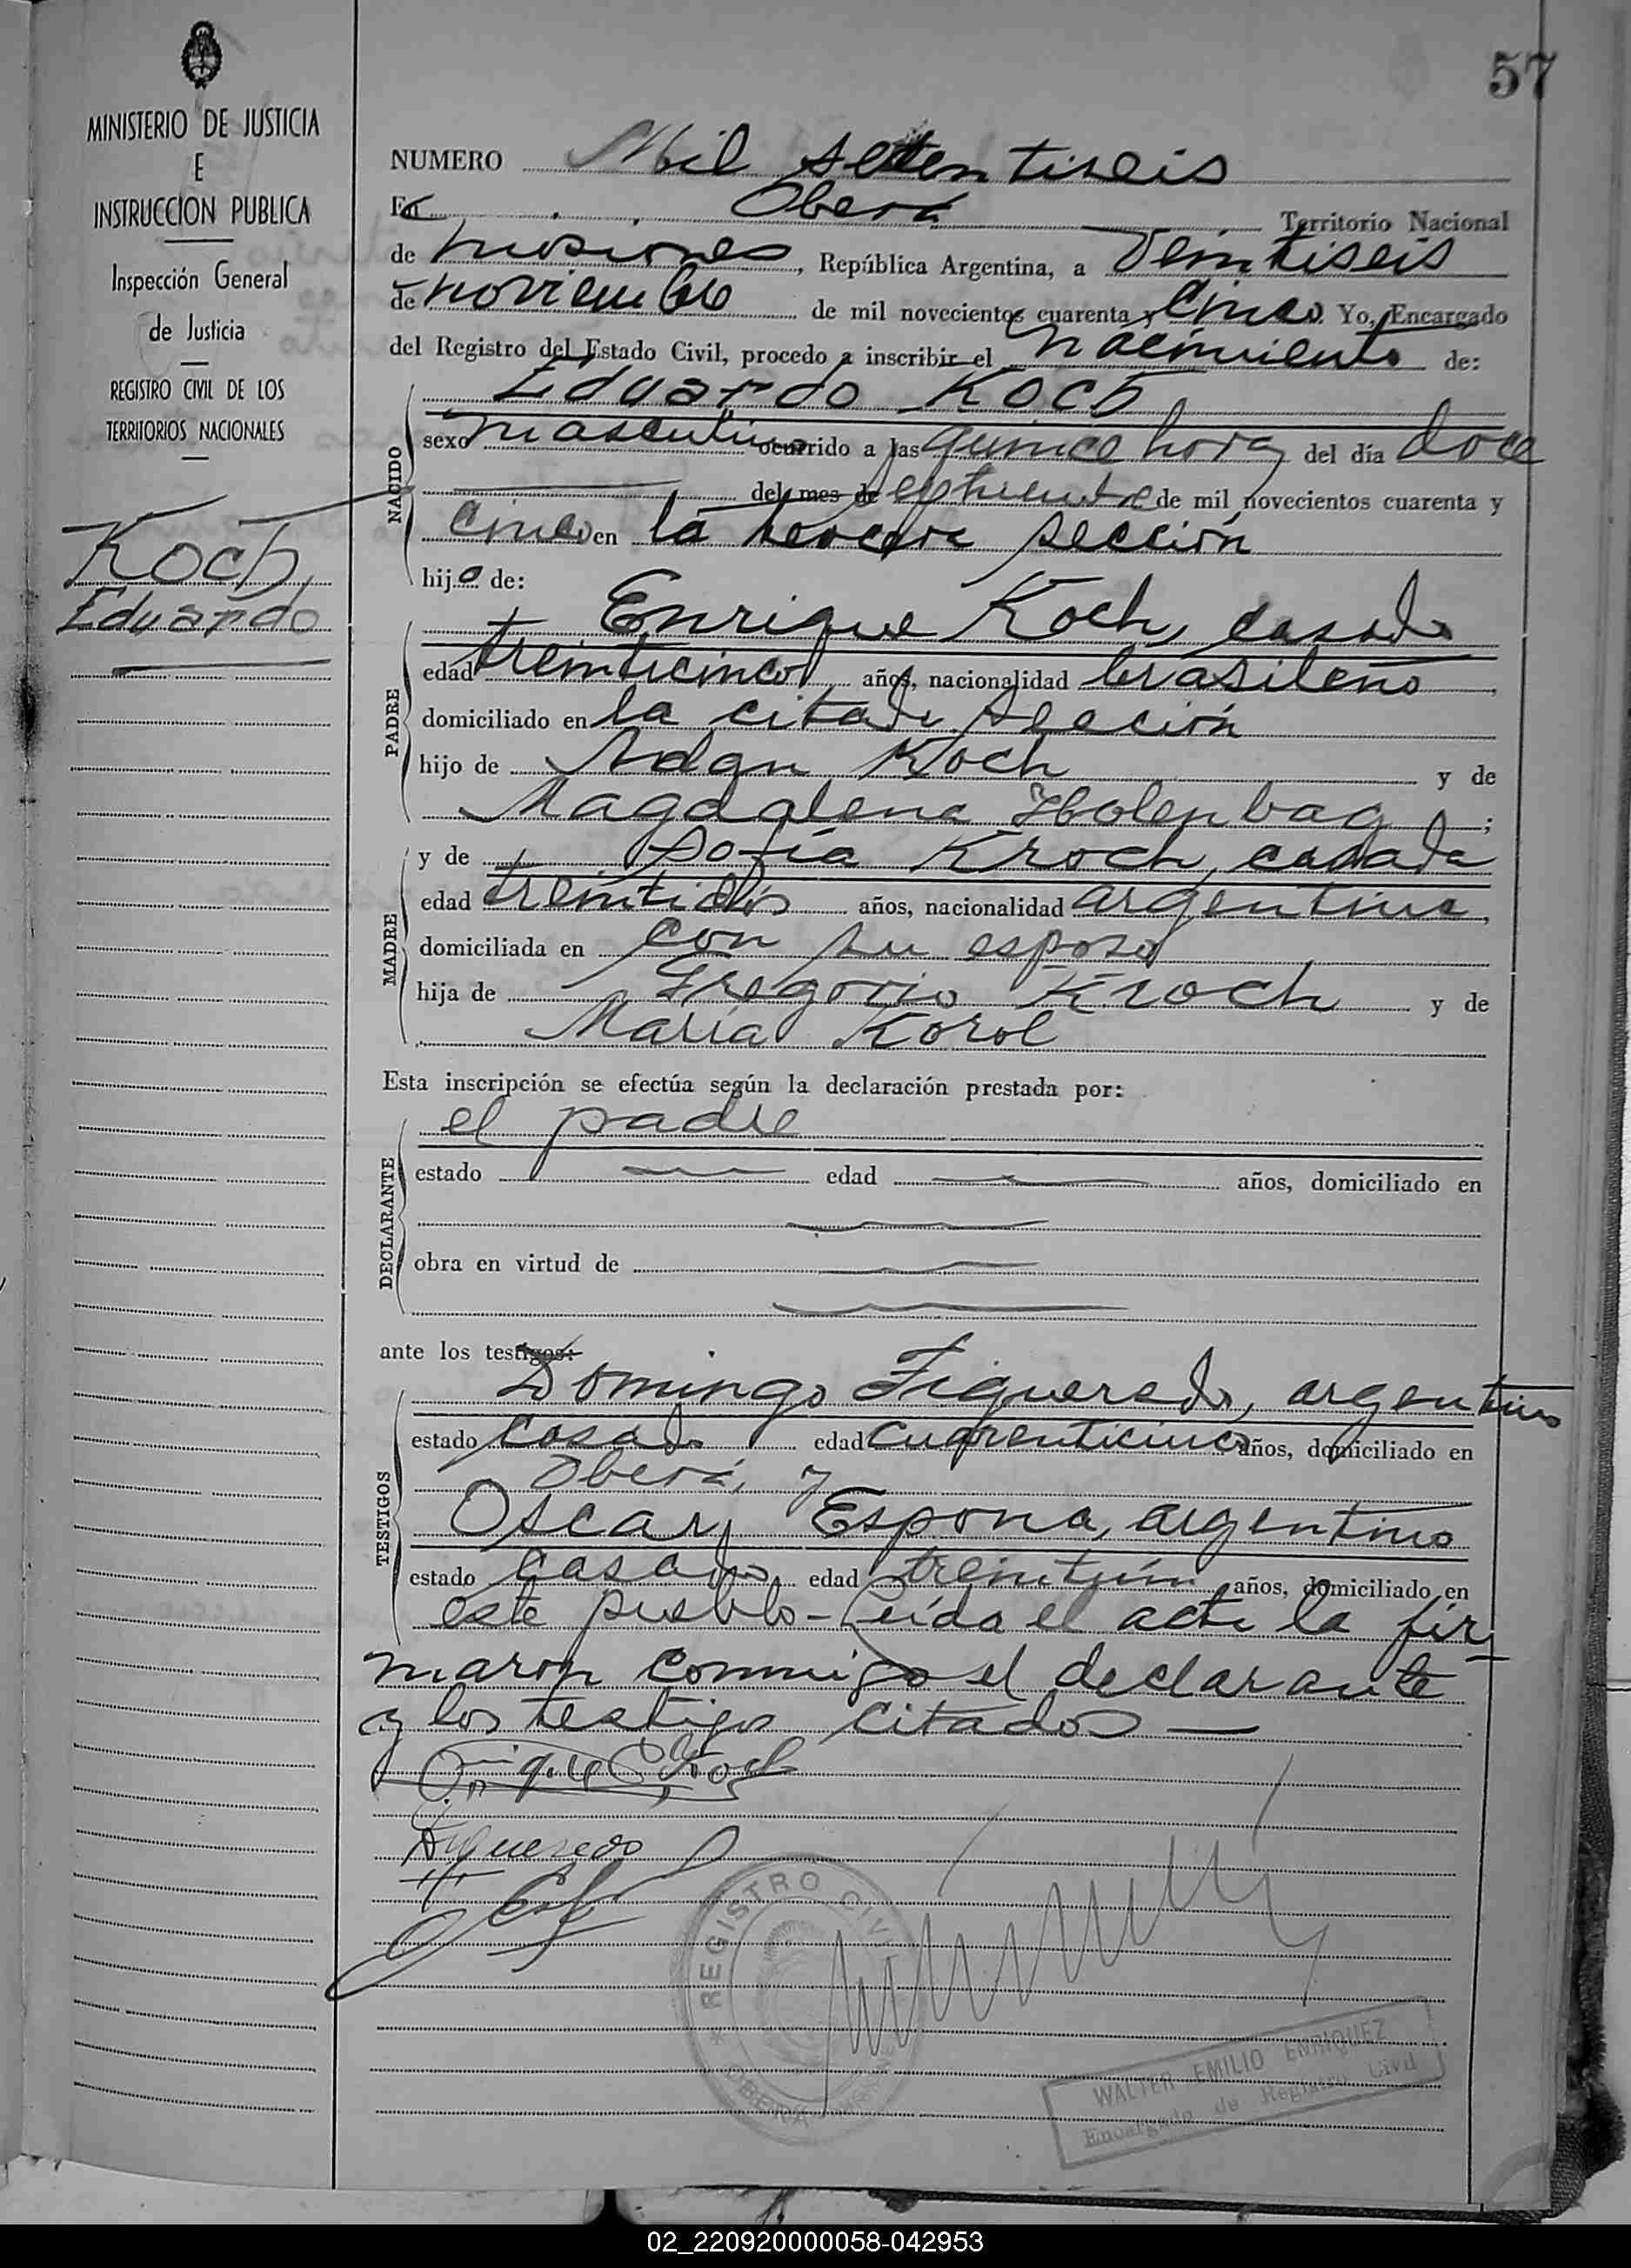 57
MINISTERIO DE JUSTICIA
E
INSTRUCCION PUBLICA
Inspección General
de Justicia
REGISTRO CIVIL DE LOS
TERRITORIOS NACIONALES
Koch,
Eduardo
NUMERO Mil setentiseis
En Oberá Territorio Nacional
de Misiones, República Argentina, a Veintiseis
de noviembre de mil novecientos cuarenta y Cinco. Yo, Encargado
del Registro del Estado Civil, procedo a inscribir el nacimiento de:
NACIDO
Eduardo Koch
sexo masculino ocurrido a las quince horas del día doce
del mes de septiembre de mil novecientos cuarenta y
cinco en la tercera sección
hijo de:
PADRE
Enrique Koch, casado
edad treinticinco años, nacionalidad brasileño
domiciliado en la citada sección
hijo de Adan Koch y de
Magdalena Holenbag;
MADRE
y de Sofía Kroch, casada
edad treintidós años, nacionalidad argentina,
domiciliada en con su esposo
hija de Gregorio Kroch y de
María Korol
Esta inscripción se efectúa según la declaración prestada por:
DECLARANTE
el padre
estado edad años, domiciliado en
obra en virtud de
ante los testigos:
TESTIGOS
Domingo Figueredo, argentino
estado casado edad cuarenticinco años, domiciliado en
Oberá, y
Oscar Espona, argentino
estado casado edad treintiún años, domiciliado en
este pueblo - Leída el acta la fir
maron conmigo el declarante
y los testigos citados —
Enrique Koch
Figueredo
REGISTRO CIVIL
OBERÁ
WALTER EMILIO ENRIQUEZ
Encargado de Registro Civil
02_220920000058-042953